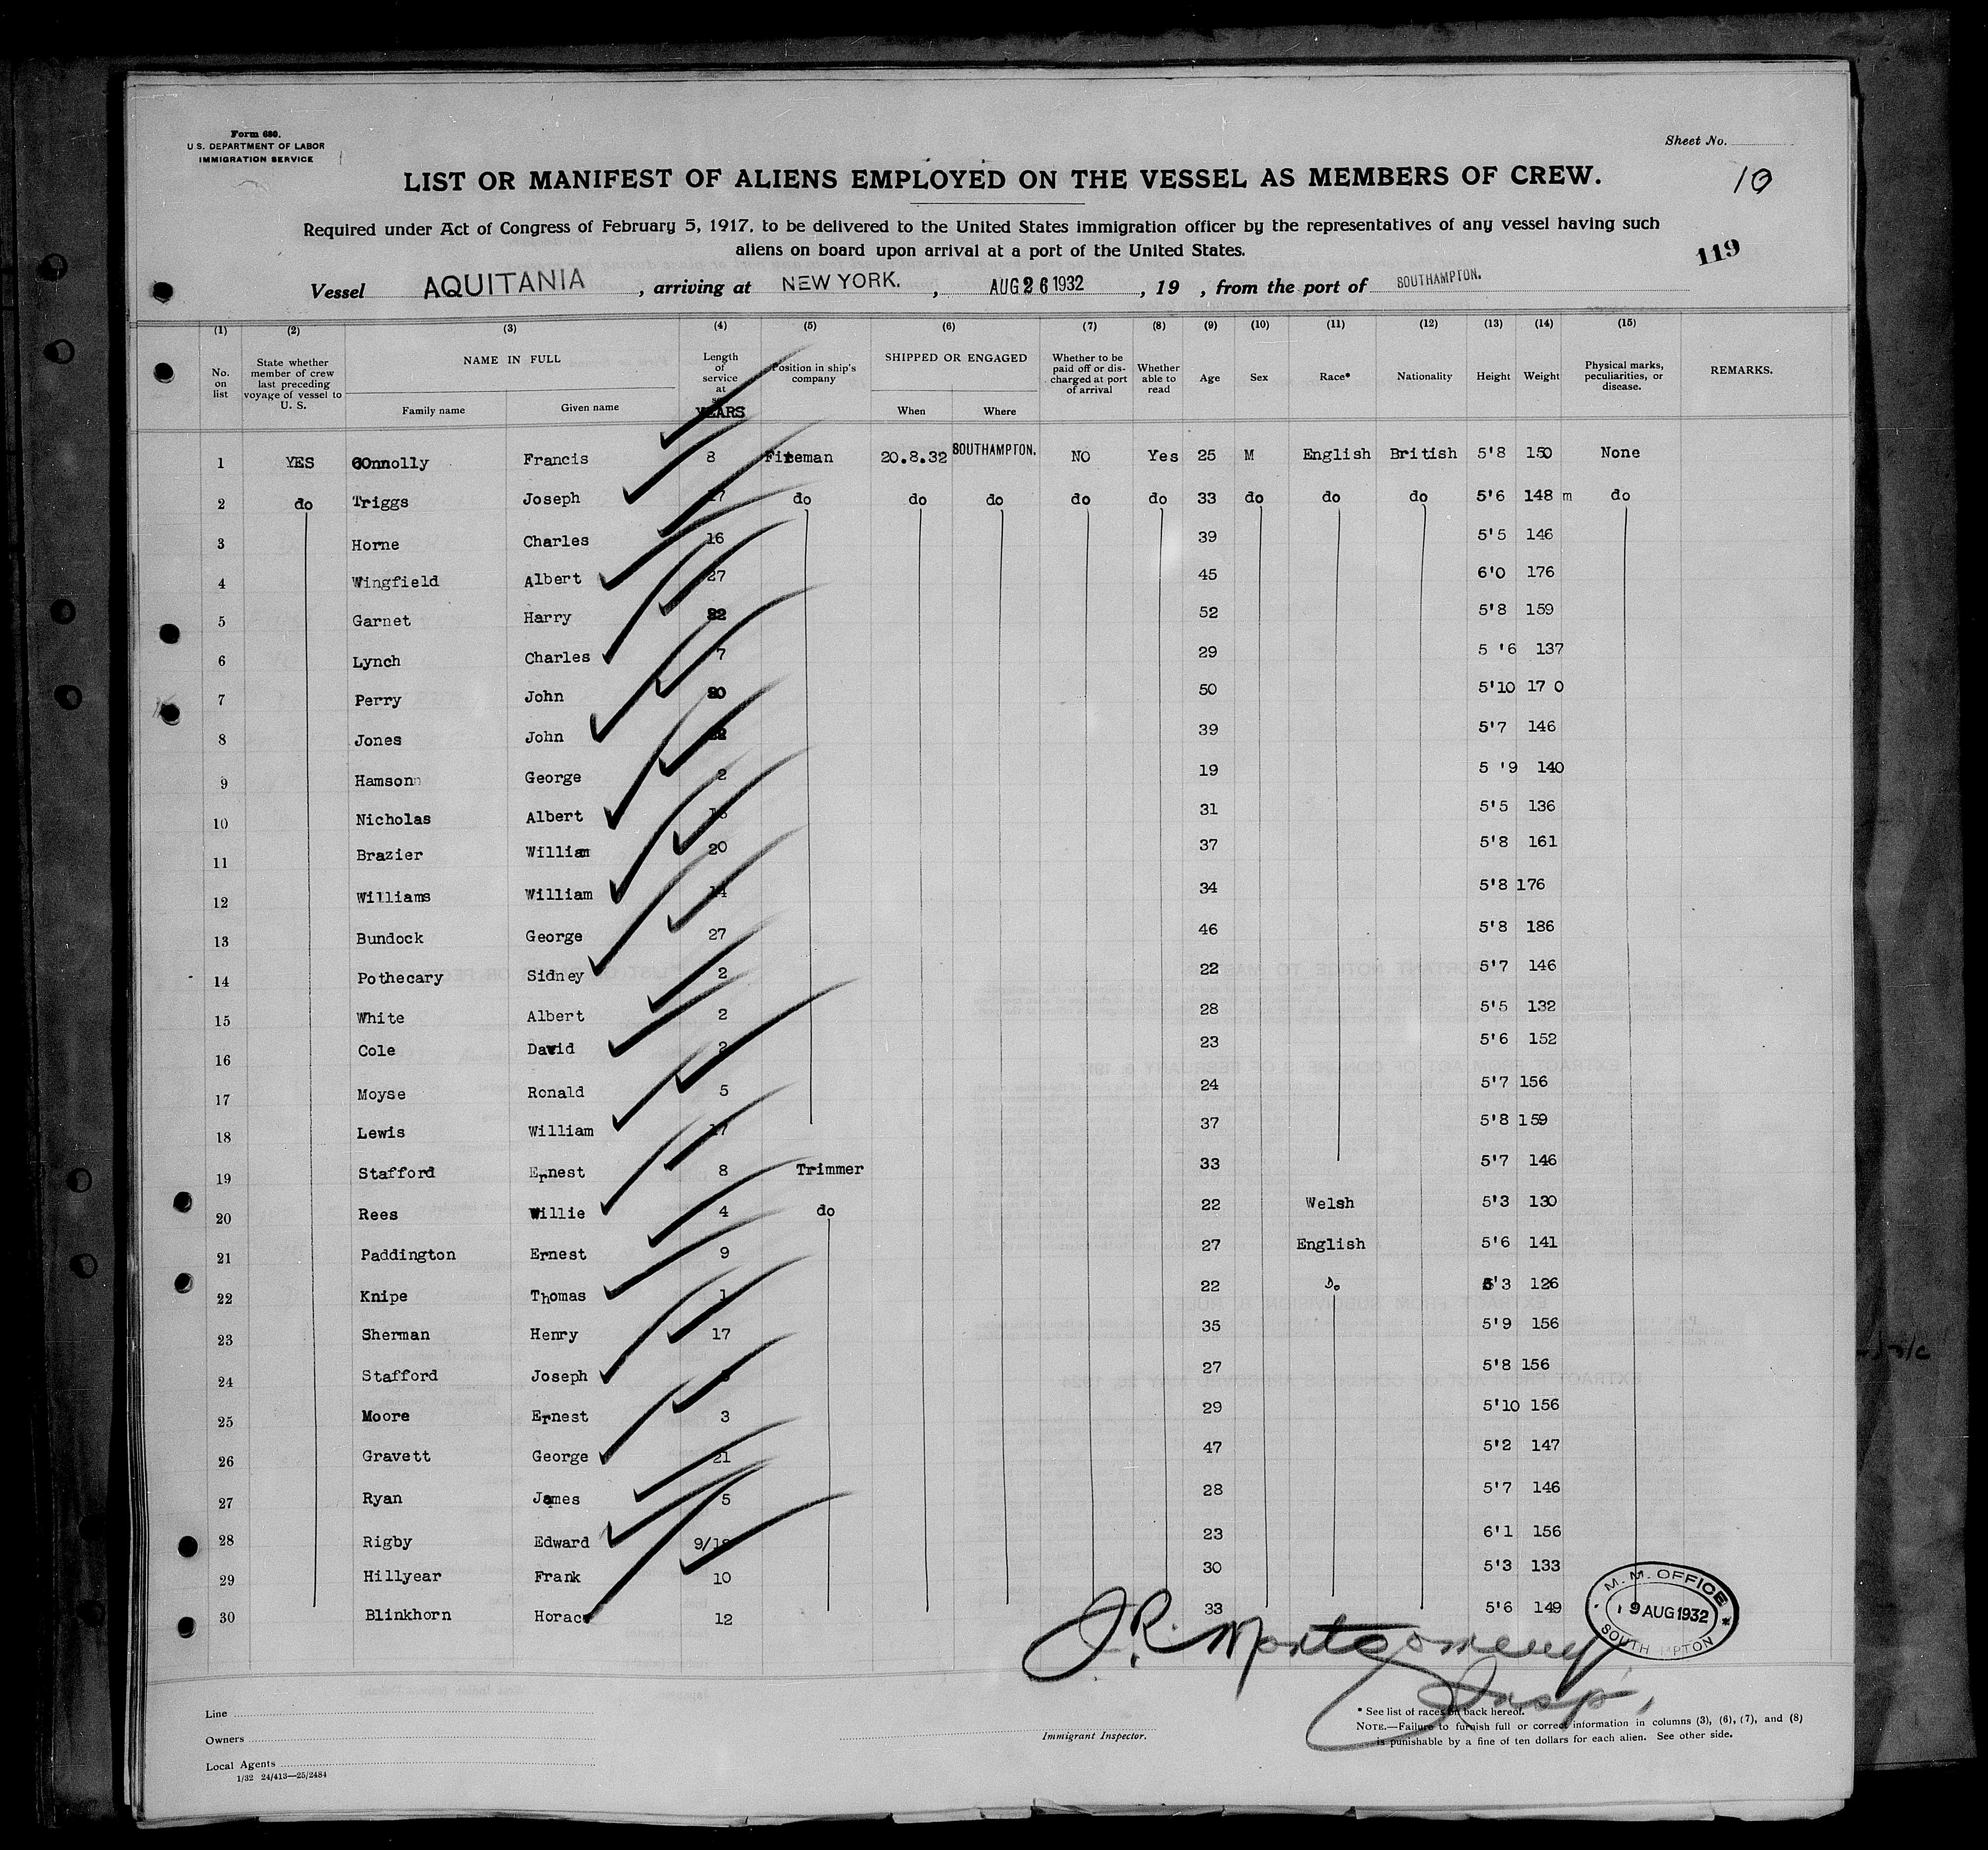 Form 680.
U.S. DEPARTMENT OF LABOR
IMMIGRATION SERVICE
Sheet No.
LIST OR MANIFEST OF ALIENS EMPLOYED ON THE VESSEL AS MEMBERS OF CREW.
10
Required under Act of Congress of February 5, 1917, to be delivered to the United States immigration officer by the representatives of any vessel having such
aliens on board upon arrival at a port of the United States.
119
Vessel AQUITANIA, arriving at NEW YORK., AUG 26 1932, 19 , from the port of SOUTHAMPTON.
(1) (2) (3) (4) (5) (6) (7) (8) (9) (10) (11) (12) (13) (14) (15)
No. on list State whether member of crew last preceding voyage of vessel to U. S. NAME IN FULL Family name Given name Length of service at YEARS Position in ship's company SHIPPED OR ENGAGED When Where Whether to be paid off or discharged at port of arrival Whether able to read Age Sex Race* Nationality Height Weight Physical marks, peculiarities, or disease. REMARKS.
1 YES COnnolly Francis 8 Fireman 20.8.32 SOUTHAMPTON. NO Yes 25 M English British 5'8 150 None
2 do Triggs Joseph 17 do do do do do 33 do do do 5'6 148 m do
3 Horne Charles 16 39 5'5 146
4 Wingfield Albert 27 45 6'0 176
5 Garnet Harry 52 5'8 159
6 Lynch Charles 7 29 5 '6 137
7 Perry John 50 5'10 17 0
8 Jones John 39 5'7 146
9 Hamson George 2 19 5 '9 140
10 Nicholas Albert 31 5'5 136
11 Brazier William 20 37 5'8 161
12 Williams William 14 34 5'8 176
13 Bundock George 27 46 5'8 186
14 Pothecary Sidney 2 22 5'7 146
15 White Albert 2 28 5'5 132
16 Cole David 2 23 5'6 152
17 Moyse Ronald 5 24 5'7 156
18 Lewis William 17 37 5'8 159
19 Stafford Ernest 8 Trimmer 33 5'7 146
20 Rees Willie 4 do 22 Welsh 5'3 130
21 Paddington Ernest 9 27 English 5'6 141
22 Knipe Thomas 1 22 Do 5'3 126
23 Sherman Henry 17 35 5'9 156
24 Stafford Joseph 27 5'8 156
25 Moore Ernest 3 29 5'10 156
26 Gravett George 21 47 5'2 147
27 Ryan James 5 28 5'7 146
28 Rigby Edward 23 6'1 156
29 Hillyear Frank 10 30 5'3 133
30 Blinkhorn Horace 12 33 5'6 149
M. M. OFFICE
19 AUG 1932
SOUTHAMPTON
J.R. Montgomery
Insp.
Line
Owners
Local Agents
1/32 24/413—25/2484
Immigrant Inspector.
* See list of races on back hereof.
NOTE.—Failure to furnish full or correct information in columns (3), (6), (7), and (8)
is punishable by a fine of ten dollars for each alien. See other side.